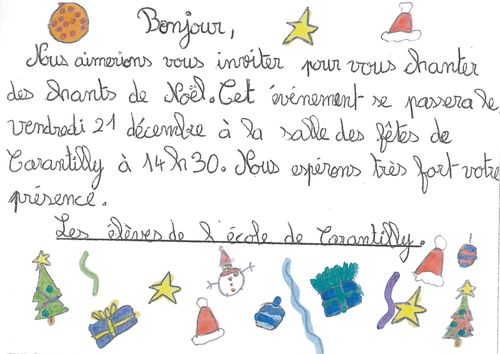 Bonjour,
Nous aimerions vous inviter pour vous chanter
des chants de Noël. Cet événement se passera le
vendredi 21 décembre à la salle des fêtes de
Carantilly à 14h30. Nous espérons très fort votre
présence.
Les élèves de l'école de Carantilly.